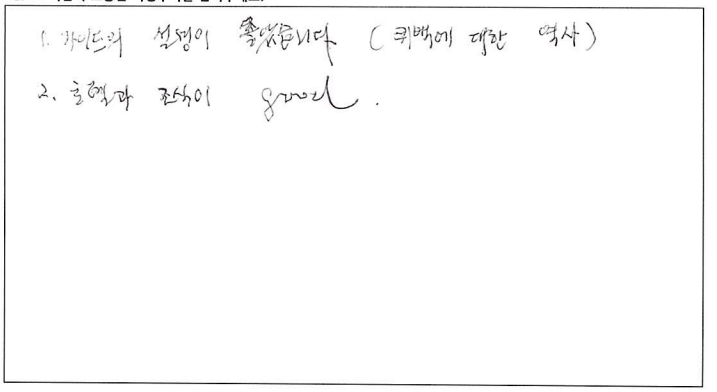 1. 가이드의 설명이 좋았습니다 (퀴백에 대한 역사)
2. 호텔과 조식이 good.